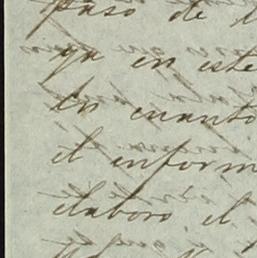 paso de l
ya en este
En cuanto
el inform
elaboró, el